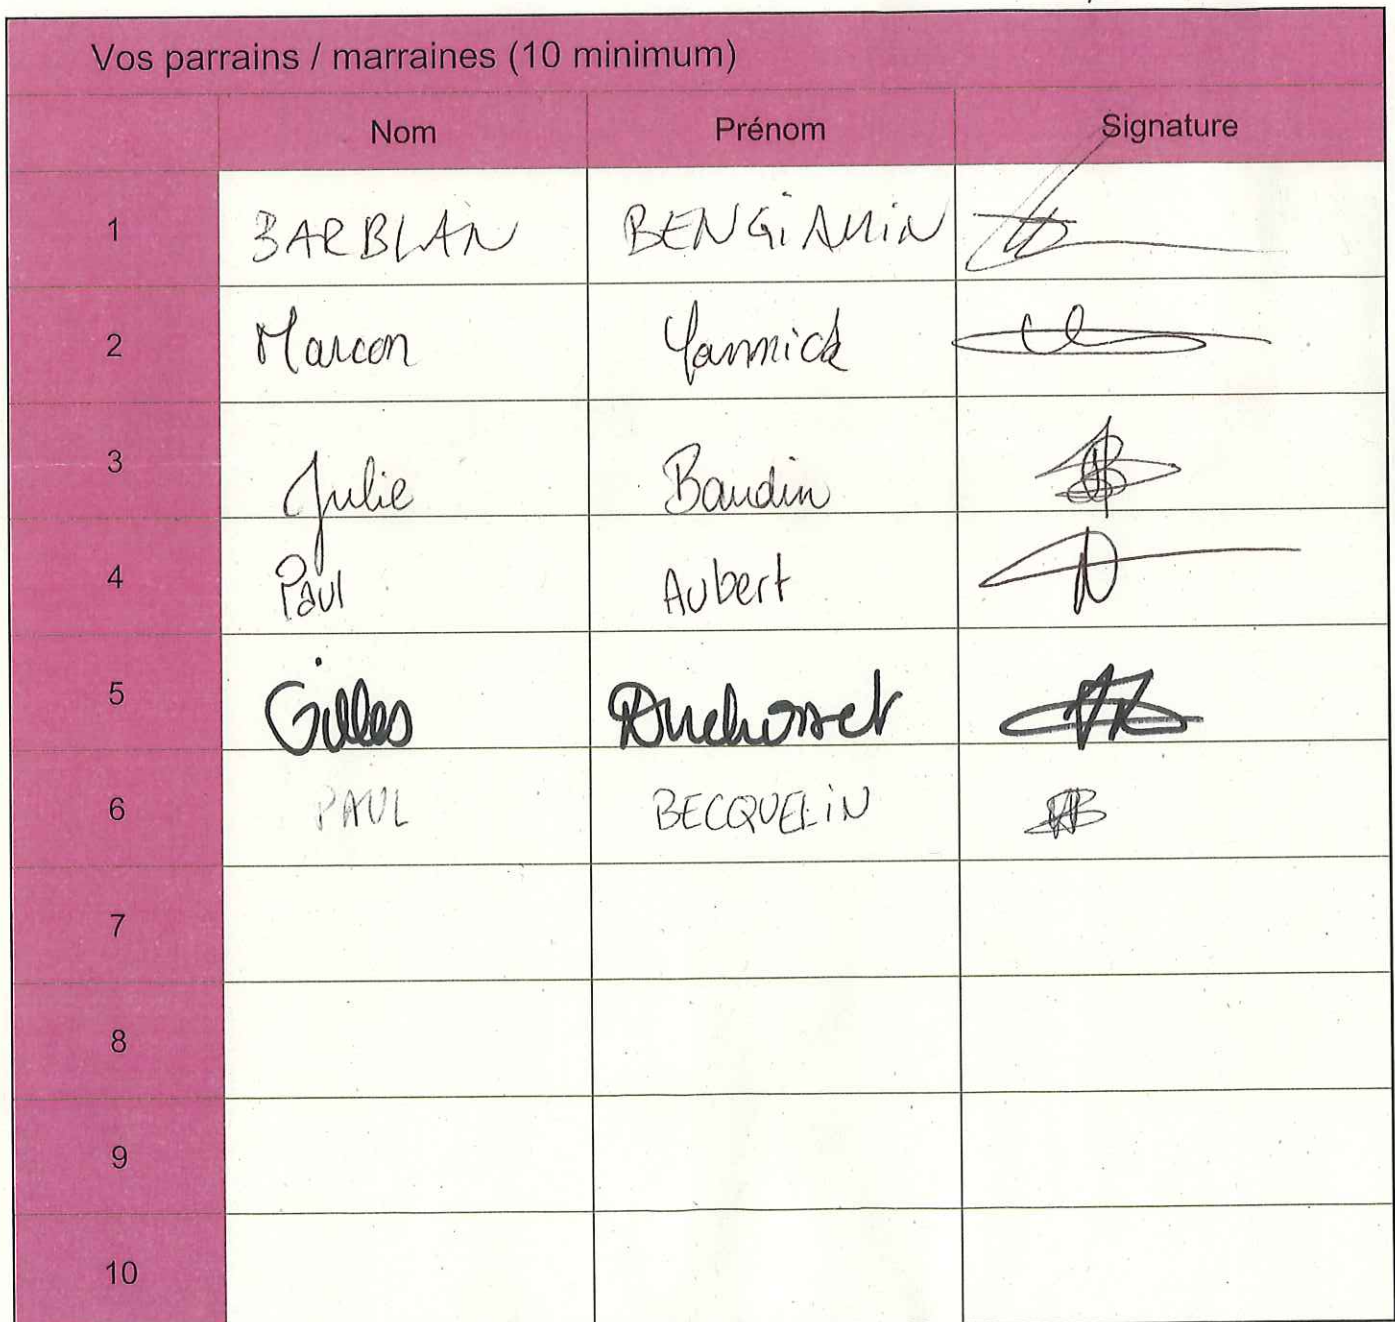 Vos parrains / marraines (10 minimum)
Nom Prénom Signature
1 BARBLAN BENGiAMiN
2 Marcon Yannick
3 Julie Baudin
4 Paul Aubert
5 Gilles Duchosset
6 PAUL BECQUELiN
7
8
9
10